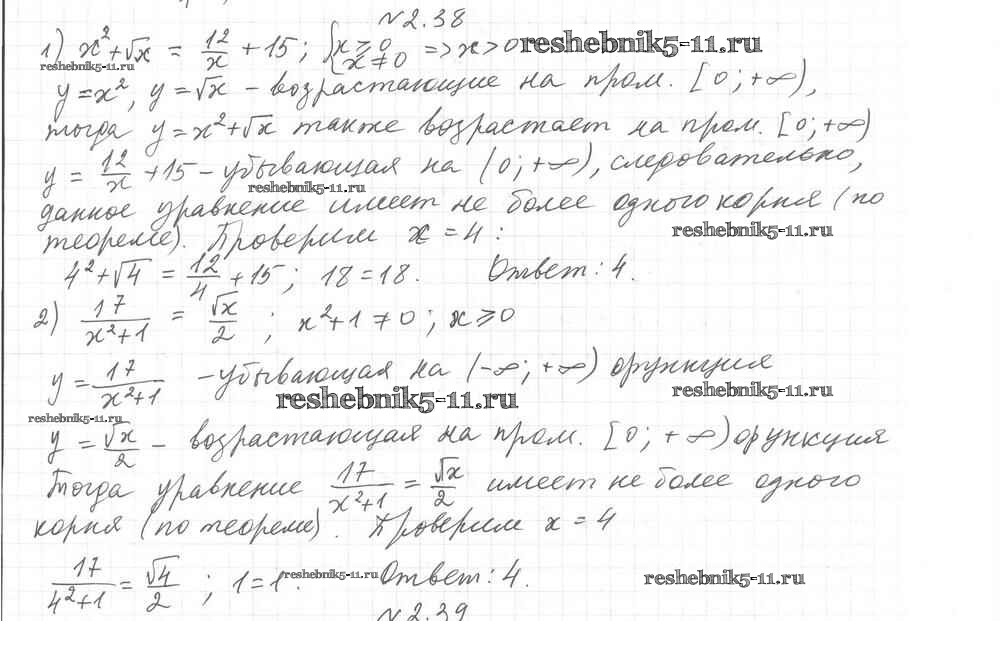 №2.38
1) x² + √x = 12/x + 15; {x ≥ 0 x ≠ 0 => x > 0 reshebnik5-11.ru
reshebnik5-11.ru
y = x², y = √x – возрастающие на пром. [0; +∞),
тогда y = x² + √x также возрастает на пром. [0; +∞)
y = 12/x + 15 – убывающая на (0; +∞), следовательно,
reshebnik5-11.ru
данное уравнение имеет не более одного корня (по
теореме). Проверим x = 4: reshebnik5-11.ru
4² + √4 = 12/4 + 15; 18 = 18. Ответ: 4.
2) 17/(x²+1) = √x/2; x² + 1 ≠ 0; x ≥ 0
y = 17/(x²+1) – убывающая на (-∞; +∞) функция
reshebnik5-11.ru reshebnik5-11.ru
reshebnik5-11.ru
y = √x/2 – возрастающая на пром. [0; +∞) функция
Тогда уравнение 17/(x²+1) = √x/2 имеет не более одного
корня (по теореме). Проверим x = 4
17/(4²+1) = √4/2; 1 = 1. reshebnik5-11.ru Ответ: 4. reshebnik5-11.ru
№2.39